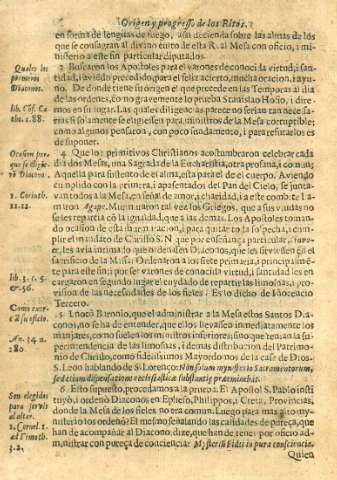 Origen y progresso de los Ritos.
en forma de lenguas de fuego, assi decienda sobre las almas de los
que se consagran al divino culto de esta R. al Mesa con oficio, i mi-
nisterio a este fin particular diputados.
Quales los
primeros
Diaconos.
2 Buscaron los Apostoles para el varones de conocida virtud, i san-
tidad, aviendo precedido, para el feliz acierto, mucha oracion, i ayu-
no. De donde tiene su origen el que precede en las Temporas al dia
de las ordenes, como gravemente lo prueba Stanislao Hosio, i dire-
mos en su lugar. Las quales diligencias parece no serian tan necessa-
rias si solamente se eligiessen para ministros de la Mesa corruptible;
como algunos pensaron, con poco fundamento, i para refutarlos es
de suponer.
lib. Cōf. Ca
tho. c. 88.
Ocasion por
que se eligiē
rō Diacono.
4 Que los primitivos Christianos acostumbraron celebrar cada
dia dos Mesas, una Sagrada de la Eucharistia, otra profana, i comun;
Aquella para sustento de el alma, esta para el de el cuerpo. Aviendo
cumplido con la primera, i apasentados del Pan del Cielo, se junta-
van todos a la Mesa, en señal de amor, i charidad, i a este combite lla-
maron Agape. Murmuraron tal vez los Griegos, que a sus viudas no
se les repartia con la igualdad, que a las demas. Los Apostoles toman-
do ocasion de esta murmuracion, i para quitar toda sospecha, i cum-
plir el mandato de Christo S. N. que por enseñança particular, i
les avia prevenido lo que ordenassen Diaconos, que les sirviessen en el
sacrificio de la Missa: Ordenaron a los siete primeros, i principalmen-
te para este fin: i por ser varones de conocida virtud, i santidad les en
cargaron en segundo lugar el cuydado de repartir las limosnas, i pro-
vision de las necesidades de los fieles: Es to dicho de Inocencio
Tercero.
1. Corinth.
11. 22.
lib. 3. c. 5.
& 56.
Como exer-
ciā su oficio.
An. 34. n.
280.
5 I notò Baronio, que el administrar a la Mesa estos Santos Dia-
conos, no se ha de entender, que ellos llevassen inmediatamente los
manjares, como suelen los ministros inferiores; sino que tenian la su-
perintendencia de las limosnas, i demas distribucion del Patrimo-
nio de Christo, como fidelissimos Mayordomos de la casa de Dios.
S. Leon hablando de S. Lorenço: Non solum ministerio Sacramentorum,
sed etiam dispensatione ecclesiasticae substantiae praeminebat.
Son elegidos
para servir
al altar.
1. Cornel. 1
ad Timoth.
3. 2.
6 Esto supuesto, procedamos a la prueba. El Apostol S. Pablo insti
tuyò, i ordenò Diaconos en Epheso, Philippos, i Creta, Provincias,
donde la Mesa de los fieles no era comun. Luego para mas alto my-
nisterio los ordenò? El mesmo señalando las calidades de pureça, que
han de acompañar al Diacono, dize, que han de tener por oficio ad-
ministrar con pureça de conciencia: Mysterium Fidei in pura conscientia.
Quien